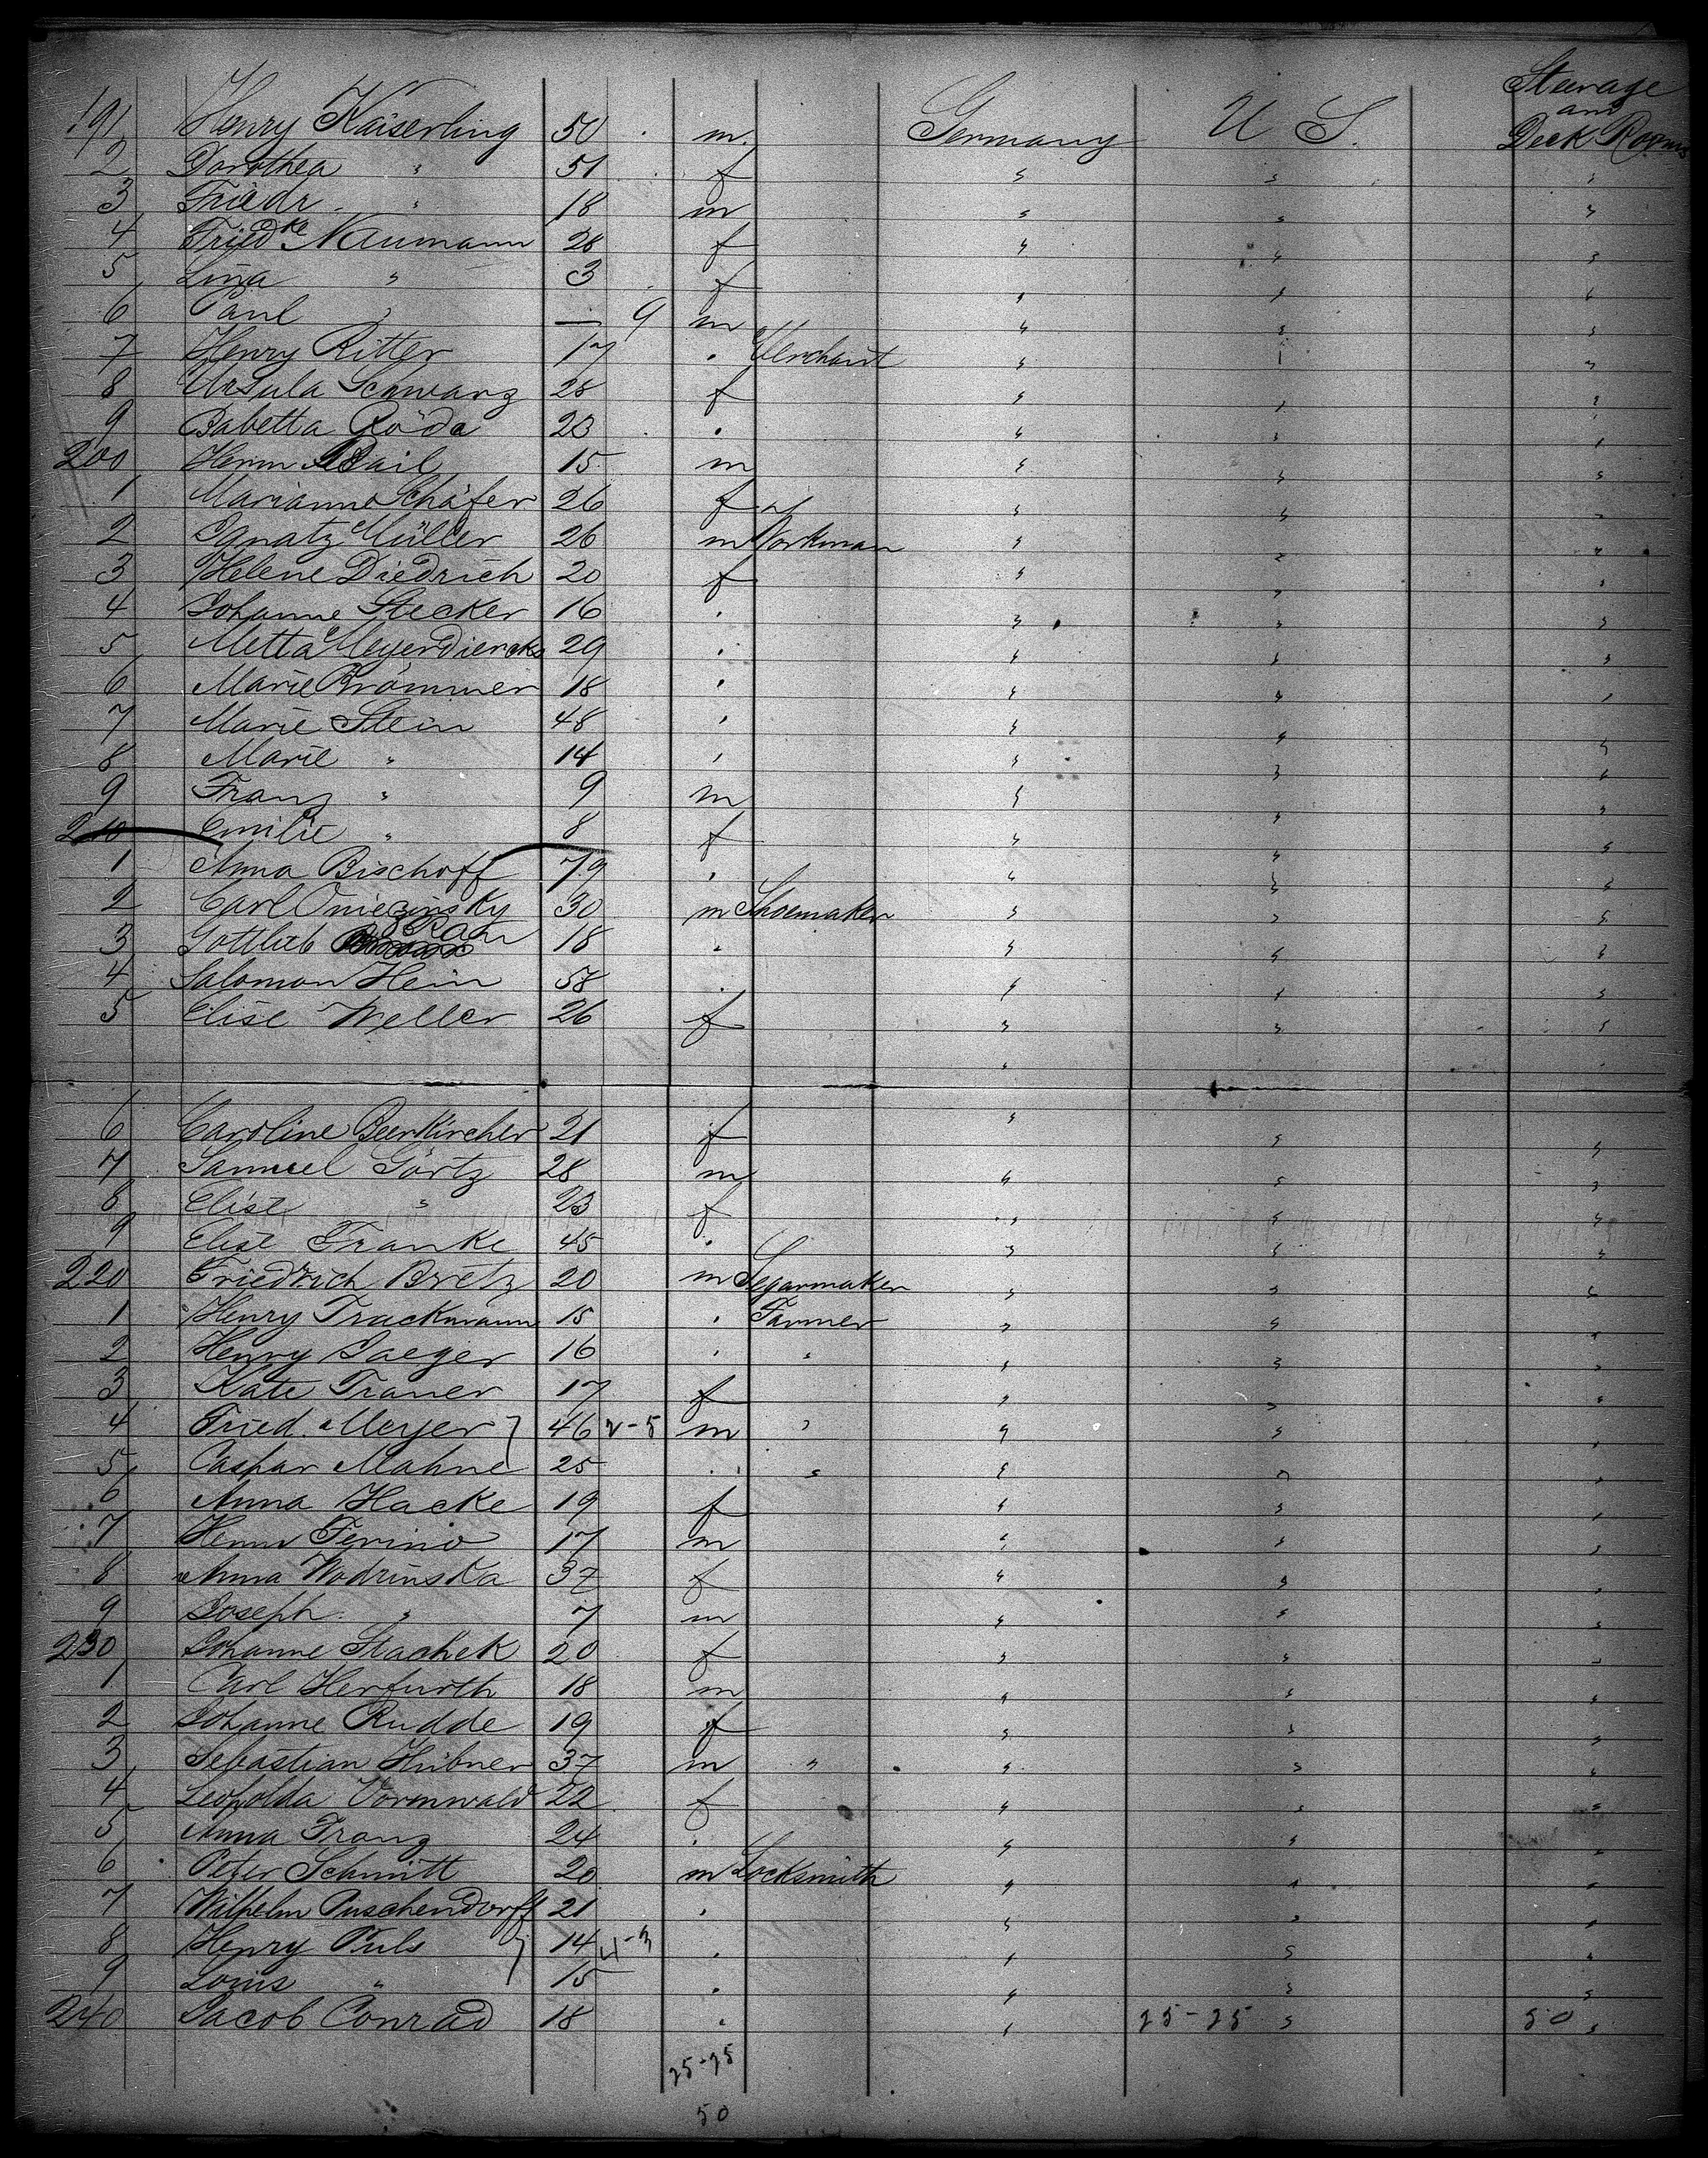 Steerage
and
191 Henry Kaiserling 50 m. Germany U S. Deck Rooms
2 Dorothea " 51 f " " "
3 Friedr. " 18 m " " "
4 Friedke Naumann 28 f " " "
5 Lina " 3 f " " "
6 Paul " — 9 m " " "
7 Henry Ritter 17 " Merchant " " "
8 Ursula Schwarz 28 f " " "
9 Babetta Röda 23 " " " "
200 Herm Bail 15 m " " "
1 Marianne Schäfer 26 f " " "
2 Ignatz Müller 26 m Workman " " "
3 Helene Diedrich 20 f " " "
4 Johanne Stecker 16 " " " "
5 Metta Meyerdiercks 29 " " " "
6 Marie Brömmer 18 " " " "
7 Marie Stein 48 " " " "
8 Marie " 14 " " " "
9 Franz " 9 m " " "
210 Emilie " 8 f " " "
1 Anna Bischoff 79 " " " "
2 Carl Oniezinsky 30 m Shoemaker " " "
3 Gottlieb 18 " " " "
4 Salomon Hein 58 " " " "
5 Elise Weller 26 f " " "
6 Caroline Beerkircher 21 f " " "
7 Samuel Görtz 28 m " " "
8 Elise " 23 f " " "
9 Elise Franke 45 " " " "
220 Friedrich Bretz 20 m Segarmaker " " "
1 Henry Trackmann 15 " Farmer " " "
2 Henry Jaeger 16 " " " " "
3 Kate Traner 17 f " " "
4 Fried. Meyer } 46 2-5 m " " " "
5 Caspar Mahne 25 " " " " "
6 Anna Hacke 19 f " " "
7 Herm Ferino 17 m " " "
8 Anna Wodrinska 37 f " " "
9 Joseph " 7 m " " "
230 Johanne Stachek 20 f " " "
1 Carl Herfurth 18 m " " "
2 Johanne Rudde 19 f " " "
3 Sebastian Hübner 37 m " " " "
4 Leopolda Vormwald 22 f " " "
5 Anna Franz 24 " " " "
6 Peter Schmitt 20 m Locksmith " " "
7 Wilhelm Puschendorff 21 " " " "
8 Henry Puls } 14 4-3 " " " "
9 Louis " 15 " " " "
240 Jacob Conrad 18 " " 25-25 " 50 "
25-25
50